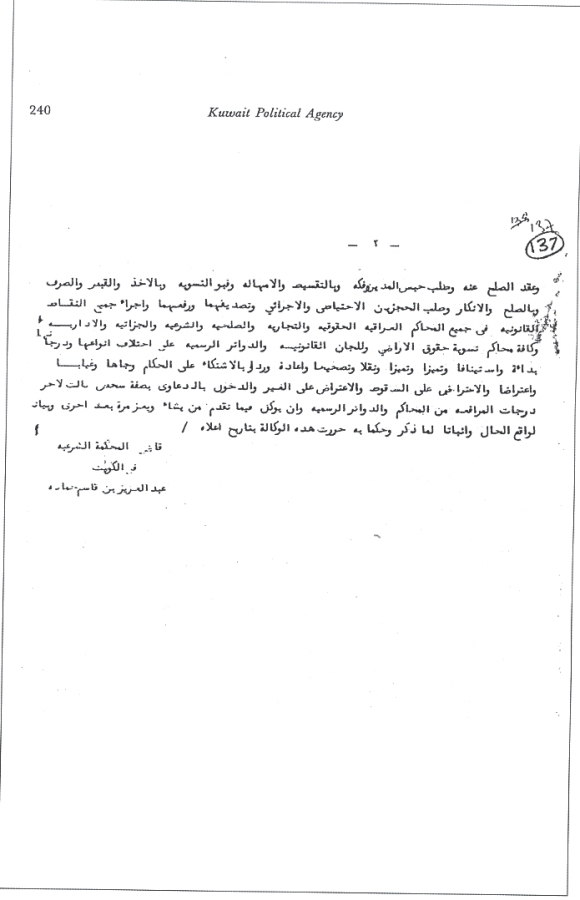 240
Kuwait Political Agency
137
137
— ٢ —
وعقد الصلح عنه وطلب حبس المدين وفكه وبالتقسيط والامهاله وقبو التسويه وبالاخذ والقبض والصرف
وبالصلح والانكار وطلب الحجزين الاحتياطي والاجرائي وتصديقهما ورفعهما واجراء جميع النقاط
القانونيه في جميع المحاكم العراقيه الحقوقيه والتجاريه والصلحيه والشرعيه والجزائيه والاداريه
وكافة محاكم تسوية حقوق الاراضي وللجان القانونيه والدوائر الرسميه على اختلاف انواعها ودرجاتها
بداءة واستينافا وتميزا وتميزا ونقلا وتصحيحا واعادة وردا بالاشتكاء على الحكام وجاها وغيابا
واعتراضا والاعتراض على السقوط والاعتراض على الغير والدخول بالدعاوى بصفة شخص ثالث لاخر
درجات المرافعه من المحاكم والدوائر الرسميه وان يوكل فيما تقدم من يشاء ويعز مرة بعد اخرى وبيانا
لواقع الحال واثباتا لما ذكر وحكما به حررت هذه الوكالة بتاريخ اعلاه /
قاضي المحكمة الشرعيه
في الكويت
عبد العزيز بن قاسم حماده